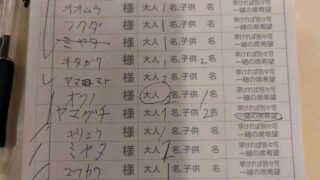 オオムラ 様 大人1名,子供 名 早ければ別々可 一緒の席希望
フクダ 様 大人1名,子供 名 早ければ別々可 一緒の席希望
ミヤタ 様 大人1名,子供 名 早ければ別々可 一緒の席希望
キタガワ 様 大人1名,子供2名 早ければ別々可 一緒の席希望
ヤマモト 様 大人2名,子供 名 早ければ別々可 一緒の席希望
様 大人2名,子供1名 早ければ別々可 一緒の席希望
ヤマグチ 様 大人1名,子供2名 早ければ別々可 一緒の席希望
様 大人1名,子供 名 早ければ別々可 一緒の席希望
ミヤタ 様 大人 名,子供 名 早ければ別々可 一緒の席希望
様 大人1名,子供 名 早ければ別々可 一緒の席希望